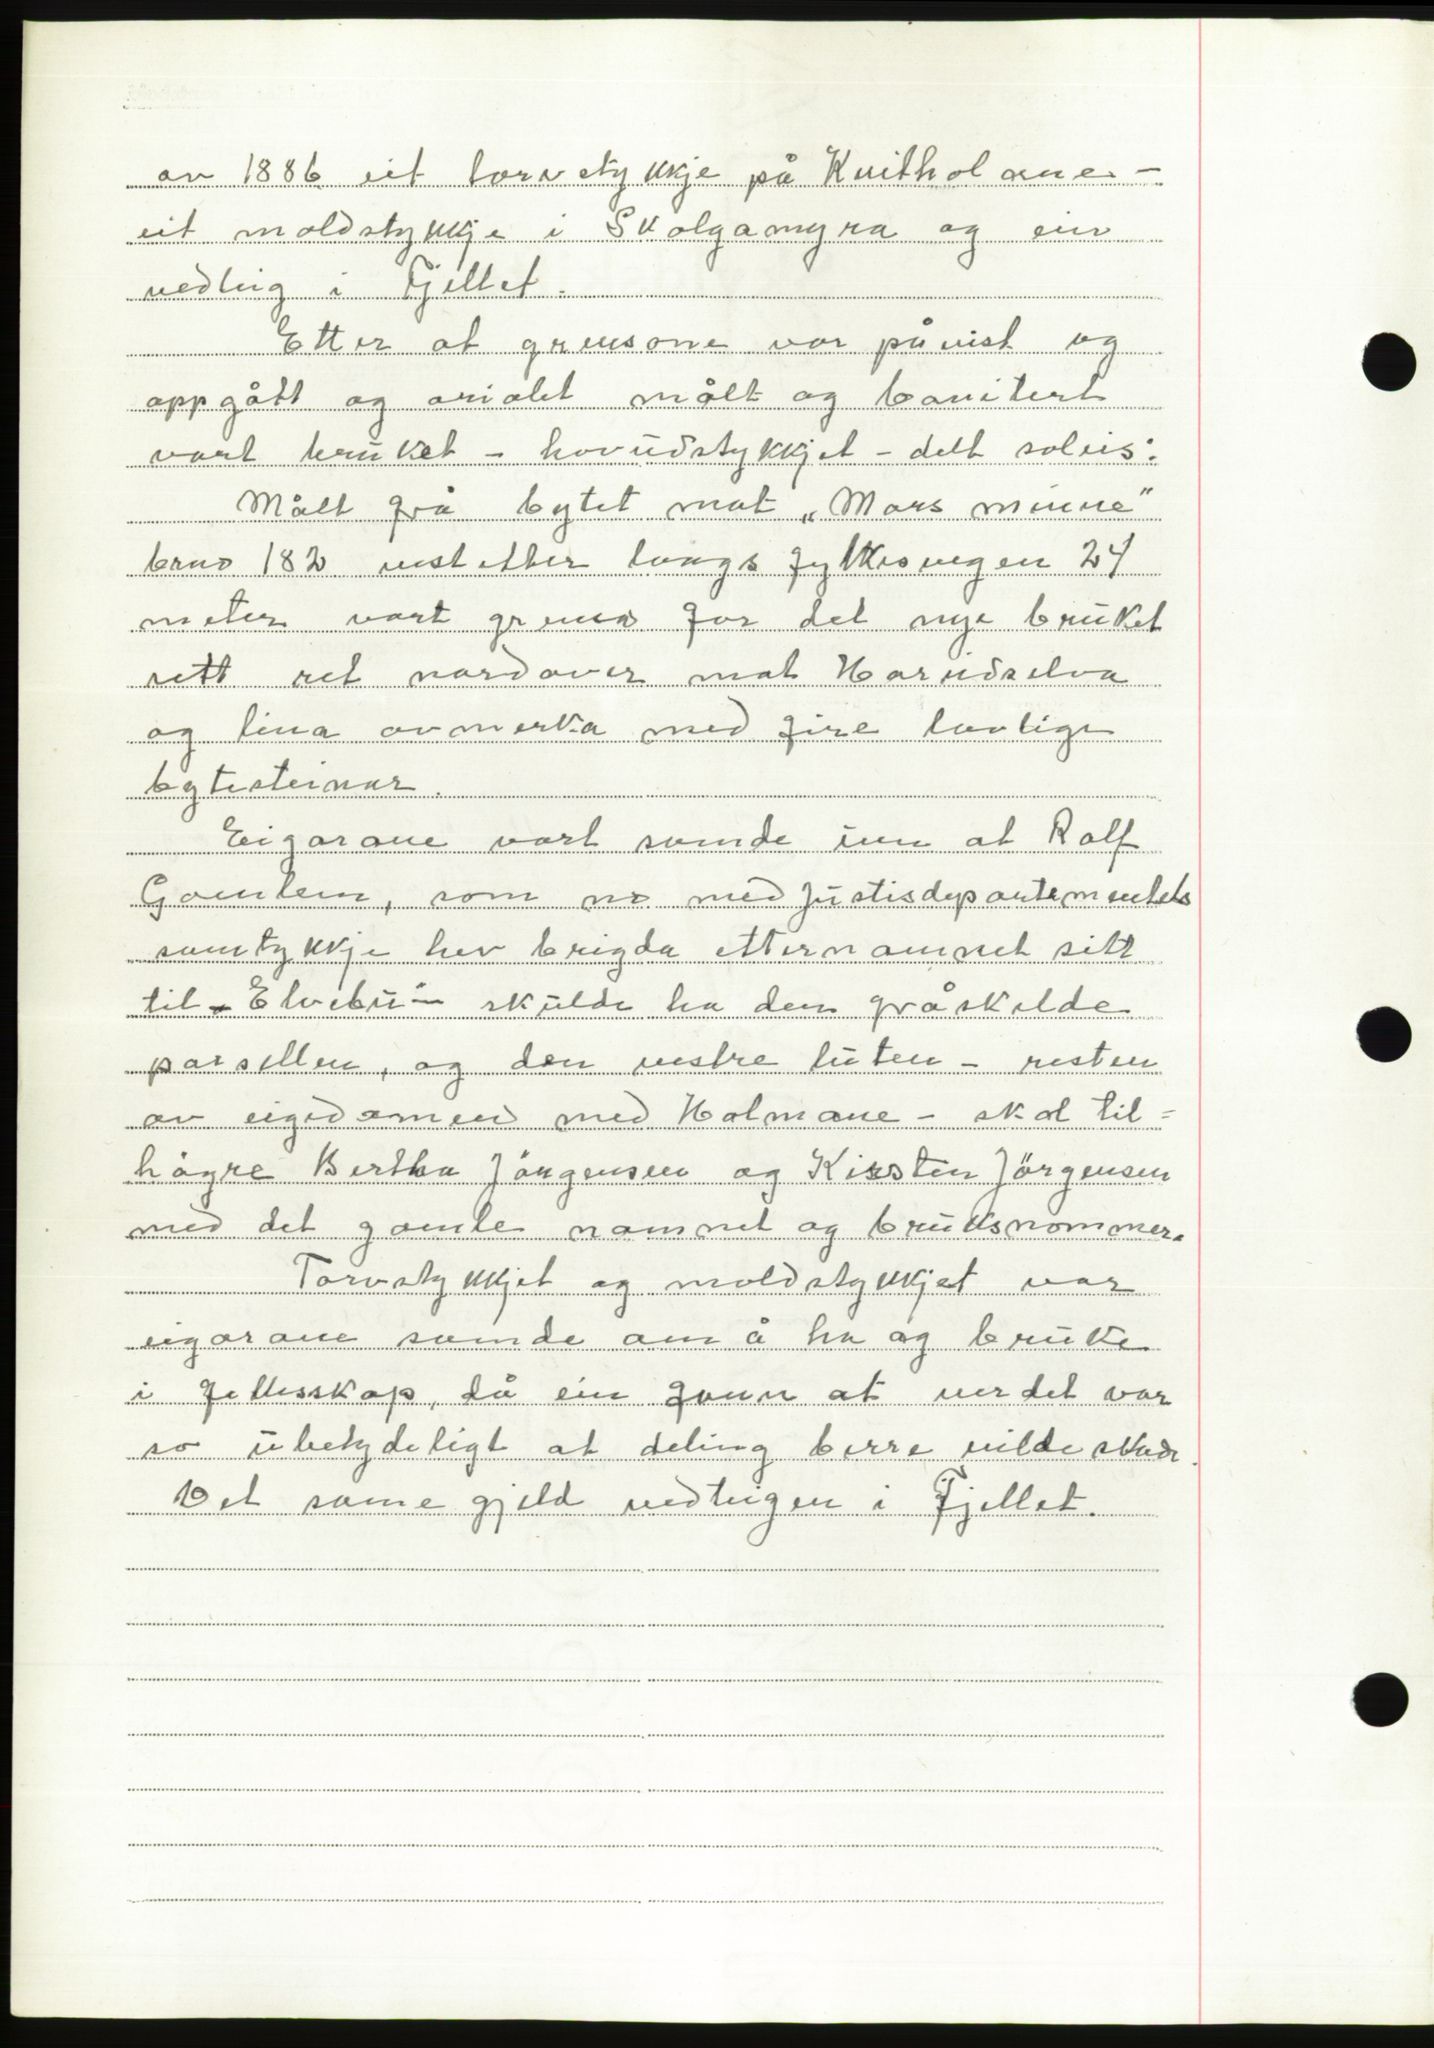 av 1886 eit torvstykkje på Kvitholane -
eit moldstykkje i Skolgamyra og ein
vedteig i Fjellet.
Etter at grensone var påvist og
oppgått og arialet målt og bonitert
vart bruket - hovudstykkjet - delt soleis:
Målt frå bytet mot „Mors minne"
brno 182 vestetter langs fylkesvegen 24
meter vart grensa for det nye bruket
rett ret nordover mot Harudselva
og lina avmerka med fire lovlige
bytesteinar.
Eigarane vart samde um at Rolf
Gamlem, som no med Justisdepartementets
samtykkje hev brigda etternamnet sitt
til - Elvebu - skulde ha den fråskilde
parsellen, og den vestre luten - resten
av eigedomen med Holmane - skal til=
høyre Bertha Jörgensen og Kirsten Jörgensen
med det gamle namnet og bruksnommer.
Torvstykkjet og moldstykkjet var
eigarane samde om å ha og bruke
i fellesskap, då ein fann at verdet var
so ubetydeligt at deling berre vilde skade.
Det same gjeld vedteigen i Fjellet.